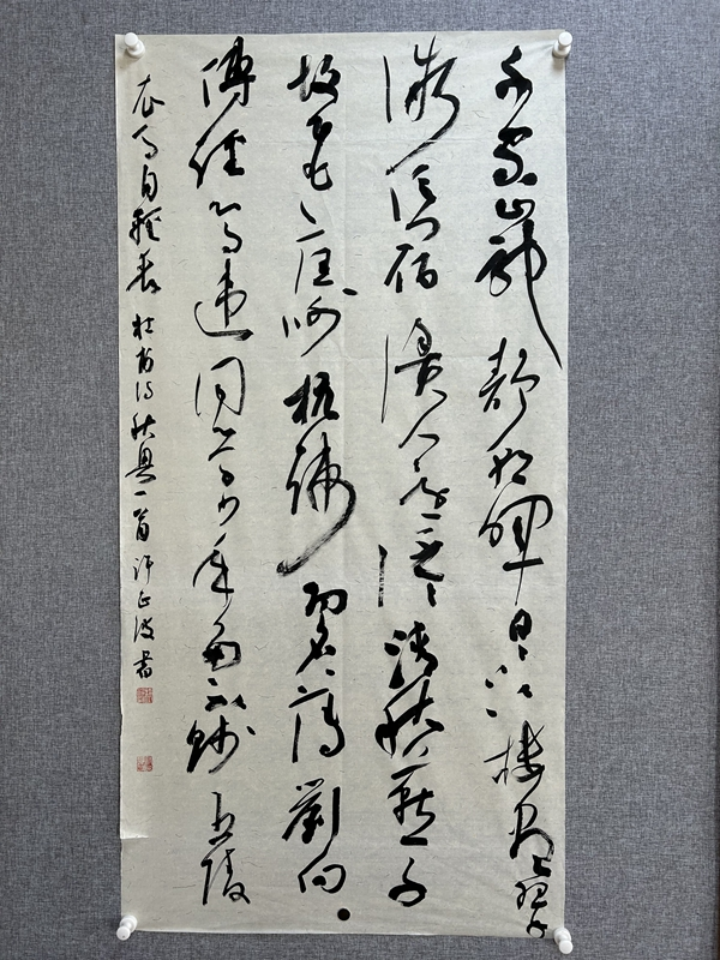 千家山郭靜朝暉日日江樓坐翠
微信宿漁人還泛泛清秋燕子
故飛飛匡衡抗疏功名薄劉向
傳經心事違同學少年多不賤五陵
衣馬自輕肥 杜甫詩秋興一首 許正波書